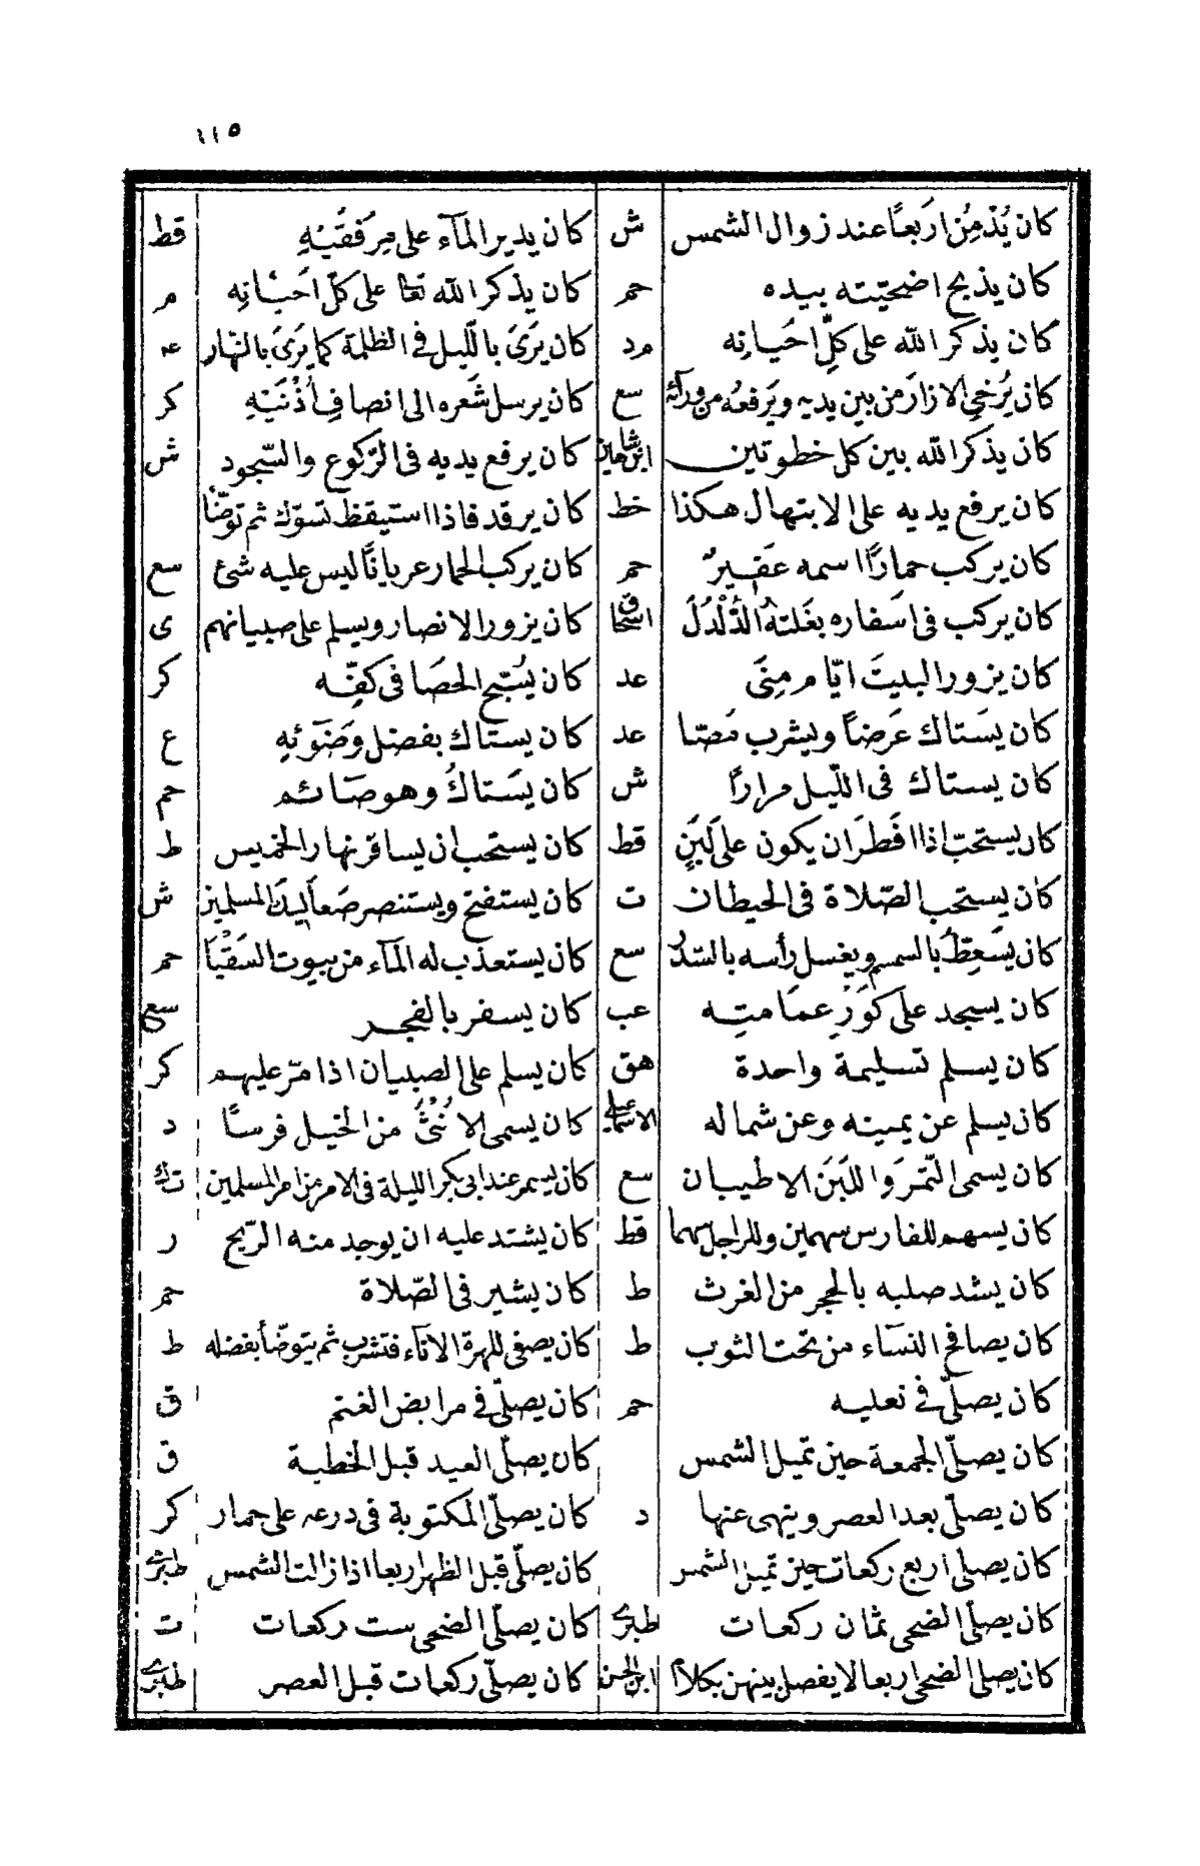 ١١٥
كان يُدْمِن اربَعًا عند زوال الشمس ش كان يدير المآء على مِرَفقَيْهِ قط
كان يذبح اضحيّته بيده حم كان يذكر الله تعا على كلّ احَيْانِه م
كان يذكر الله على كلِّ احيانه مرد كان يَرَى بالّليل فى الظلمة كما يَرَى بالنّهار عد
كان يُرخى الازارَ من بين يديه ويَرفعُه من ورآئه سع كان يرسل شَعره الى انصافِ اُذْنَيْهِ كر
كان يذكر الله بين كل خطوتين ابن شاهين كان يرفع يديه فى الرّكوع والسّجود ش
كان يرفع يديه على الابتهال هكذا خط كان يرقد فاذا استيقظ تسوّك ثم توضّأ
كان يركب حمارًا اسمه عَفَيرٌ حم كان يركب الحمار عريانًا ليس عليه شئ سع
كان يركب فى اسفاره بغَلتهُ الدُّلْدُلَ اسحاق كان يزور الانصار ويسلم على صبيانهم ى
كان يزور البيتَ ايّام مِنَى عد كان يُسَبّح الحصَا فى كفِّه كر
كان يَستاك عَرَضاً ويشرب مَصّا عد كان يستاك بفضل وَضَوْئِهِ ع
كان يستاك فى اللّيل مرارًا ش كان يَستاكُ وهو صَائم حم
كان يستحبّ اذا افَطَر ان يكون على لَبَنٍ قط كان يستحب ان يسافر نهار الخميس ط
كان يستحب الصّلاة فى الحيطان ت كان يستفتح ويستنصر بصَعاليك المسلمين ش
كان يَسَعِطُ بالسمسم ويغسل رأسه بالسّدر سع كان يستعذب له المآء من بيوت السَقْيَا حم
كان يسجد على كَوَرِ عمامتِه عب كان يسفر بالفجر سع
كان يسلم تسليمة واحدة هق كان يسلم على الصبيان اذا مَرّ عليهم كر
كان يسلم عن يمينه وعن شماله الاسماعيلى كان يسمى الانُثَى من الخيل فرسًا د
كان يسمى التّمرَ واللبَنَ الاطيبان سع كان يسمر عند ابى بكر الليلة فى الامر من امر المسلمين ت ك
كان يسهم للفارس سهمين وللراجل سهما قط كان يشتد عليه ان يوجد منه الرّيح ر
كان يشد صلبه بالحجر من الغرث ط كان يشير فى الصّلاة حم
كان يصافح النسآء من تحت الثوب ط كان يصغى للهرة الانآء فتشرب ثم يتوضّأ بفضله ط
كان يصلّى فى نعليه حم كان يصلّى فى مرابض الغنم ق
كان يصلّى الجمعة حين تميل الشمس كان يصلّى العيد قبل الخطبة ق
كان يصلّى بعد العصر وينهى عنها د كان يصلّى المكتوبة فى درعه على حمار كر
كان يصلى اربع ركعات حين تميل الشمس كان يصلّى قبل الظهر اربعا اذا زالت الشمس طبرى
كان يصلّى الضحى ثمان ركعات طبرى كان يصلّى الضحى ست ركعات ت
كان يصلى الضحى اربعا لا يفصل بينهن بكلام ابن الحسن كان يصلّى ركعات قبل العصر طبرى